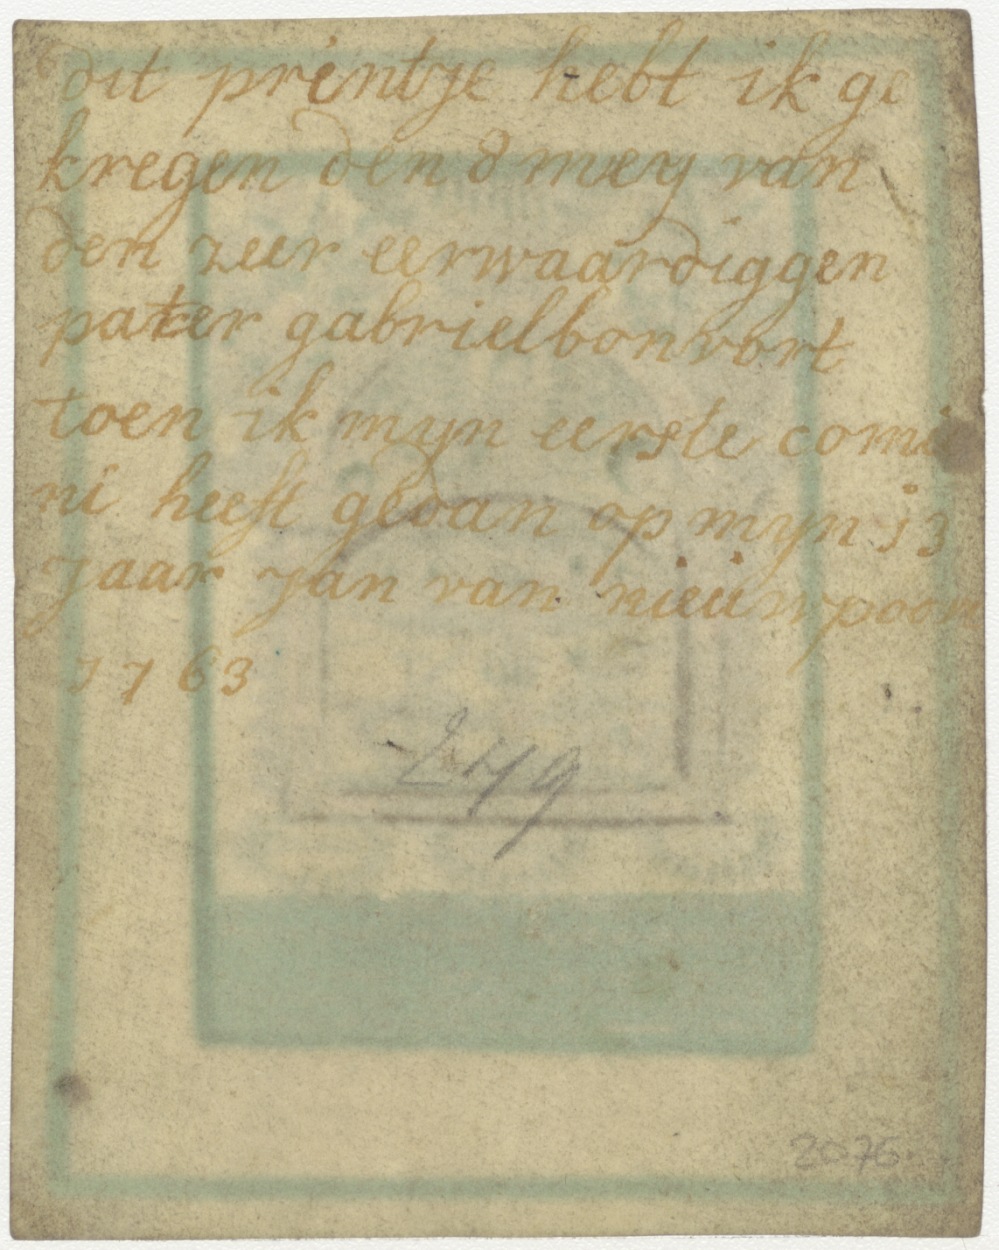 dit printje hebt ik ge
kregen den 8 mey van
den zeer eerwaardiggen
pater gabrielbonvort
toen ik myn eerste comu
ni heeft gedan op myn 13
jaar jan van nieuwpoort
1763
249
2076.